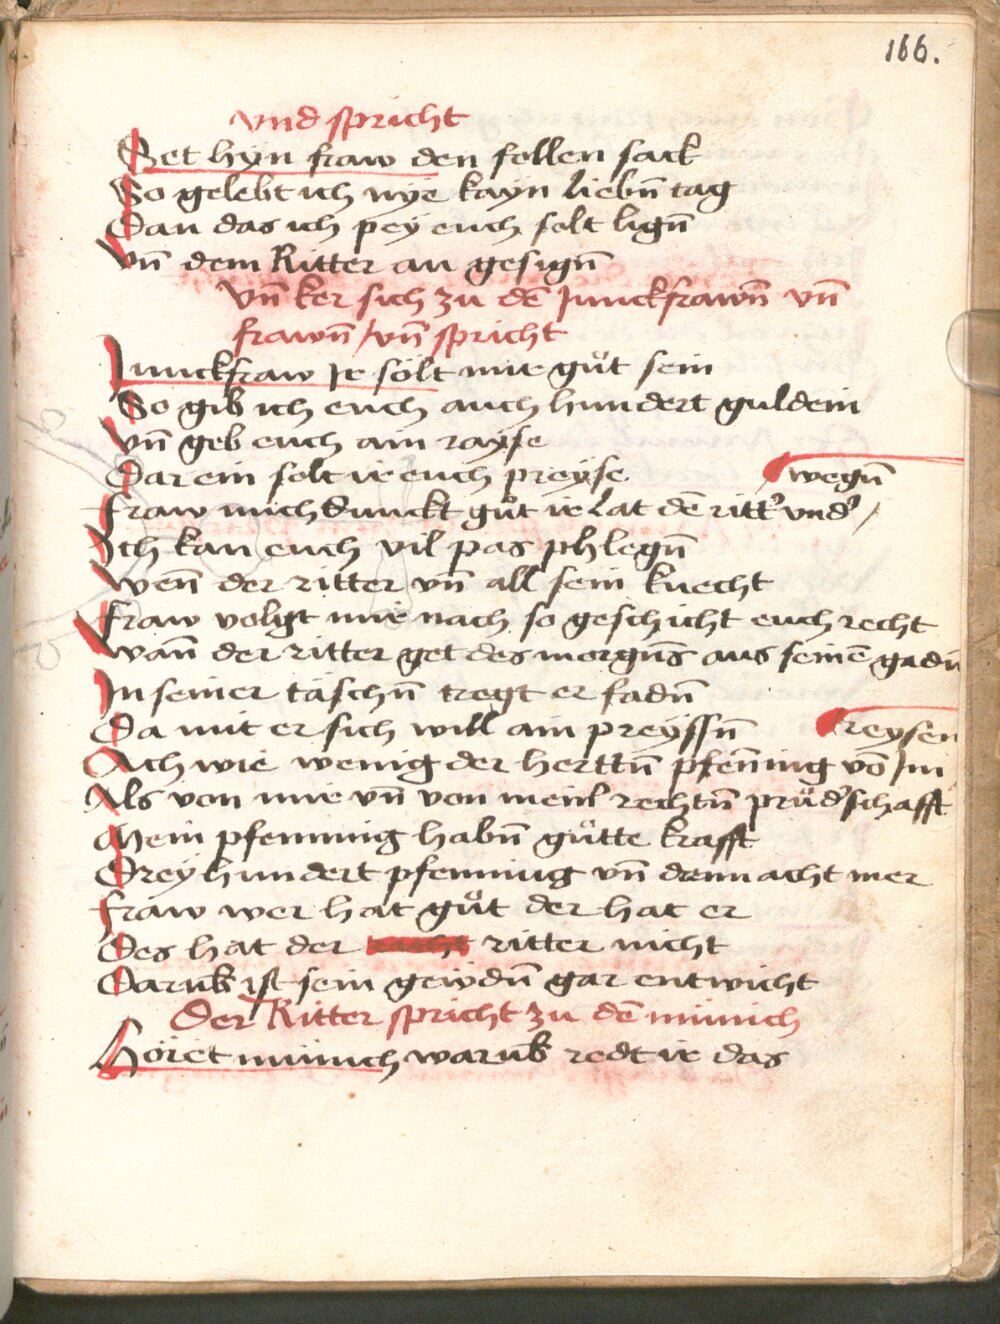 166.
vnd spricht
Set hyn fraw den follen sack
So gelebt ich nye kayn liebn̄ tag
Dan das ich pey euch solt lign̄
Vn̄ dem Ritter an gesign̄
Vn̄ ker sich zu dē Junckfrawn̄ vn̄
frawn̄ / vn̄ spricht
Junckfraw Ir solt mir gůt sein
So gib ich euch auch hundert guldein
Vn̄ geb euch ain rayse
Dar ein solt ir euch preyse
wegn̄
fraw mich dunckt gůt ir lat dē ritt' vnd' /
Ich kan euch vil pas phlegn̄
wen̄ der ritter vn̄ all sein knecht
fraw volgt mir nach so geschicht euch recht
wan̄ der ritter get des morgn̄s aus seinē gadn̄
In seiner täschn̄ tregt er fadn̄
Da mit er sich will ain preyssn̄
kreysen
Ach wie wenig der herttn̄ pfen̄ning vō Im
Als von mir vn̄ von meinr rechtn̄ průd'schafft
Mein pfenning habn̄ gůtte krafft
Drey hundert pfenning vn̄ dannacht mer
fraw wer hat gůt der hat er
Des hat der ritter nicht
Darub̄ ist sein gewdn̄ gar entwicht
Der Ritter spricht zu dē münich
Höret münich warub̄ redt ir das